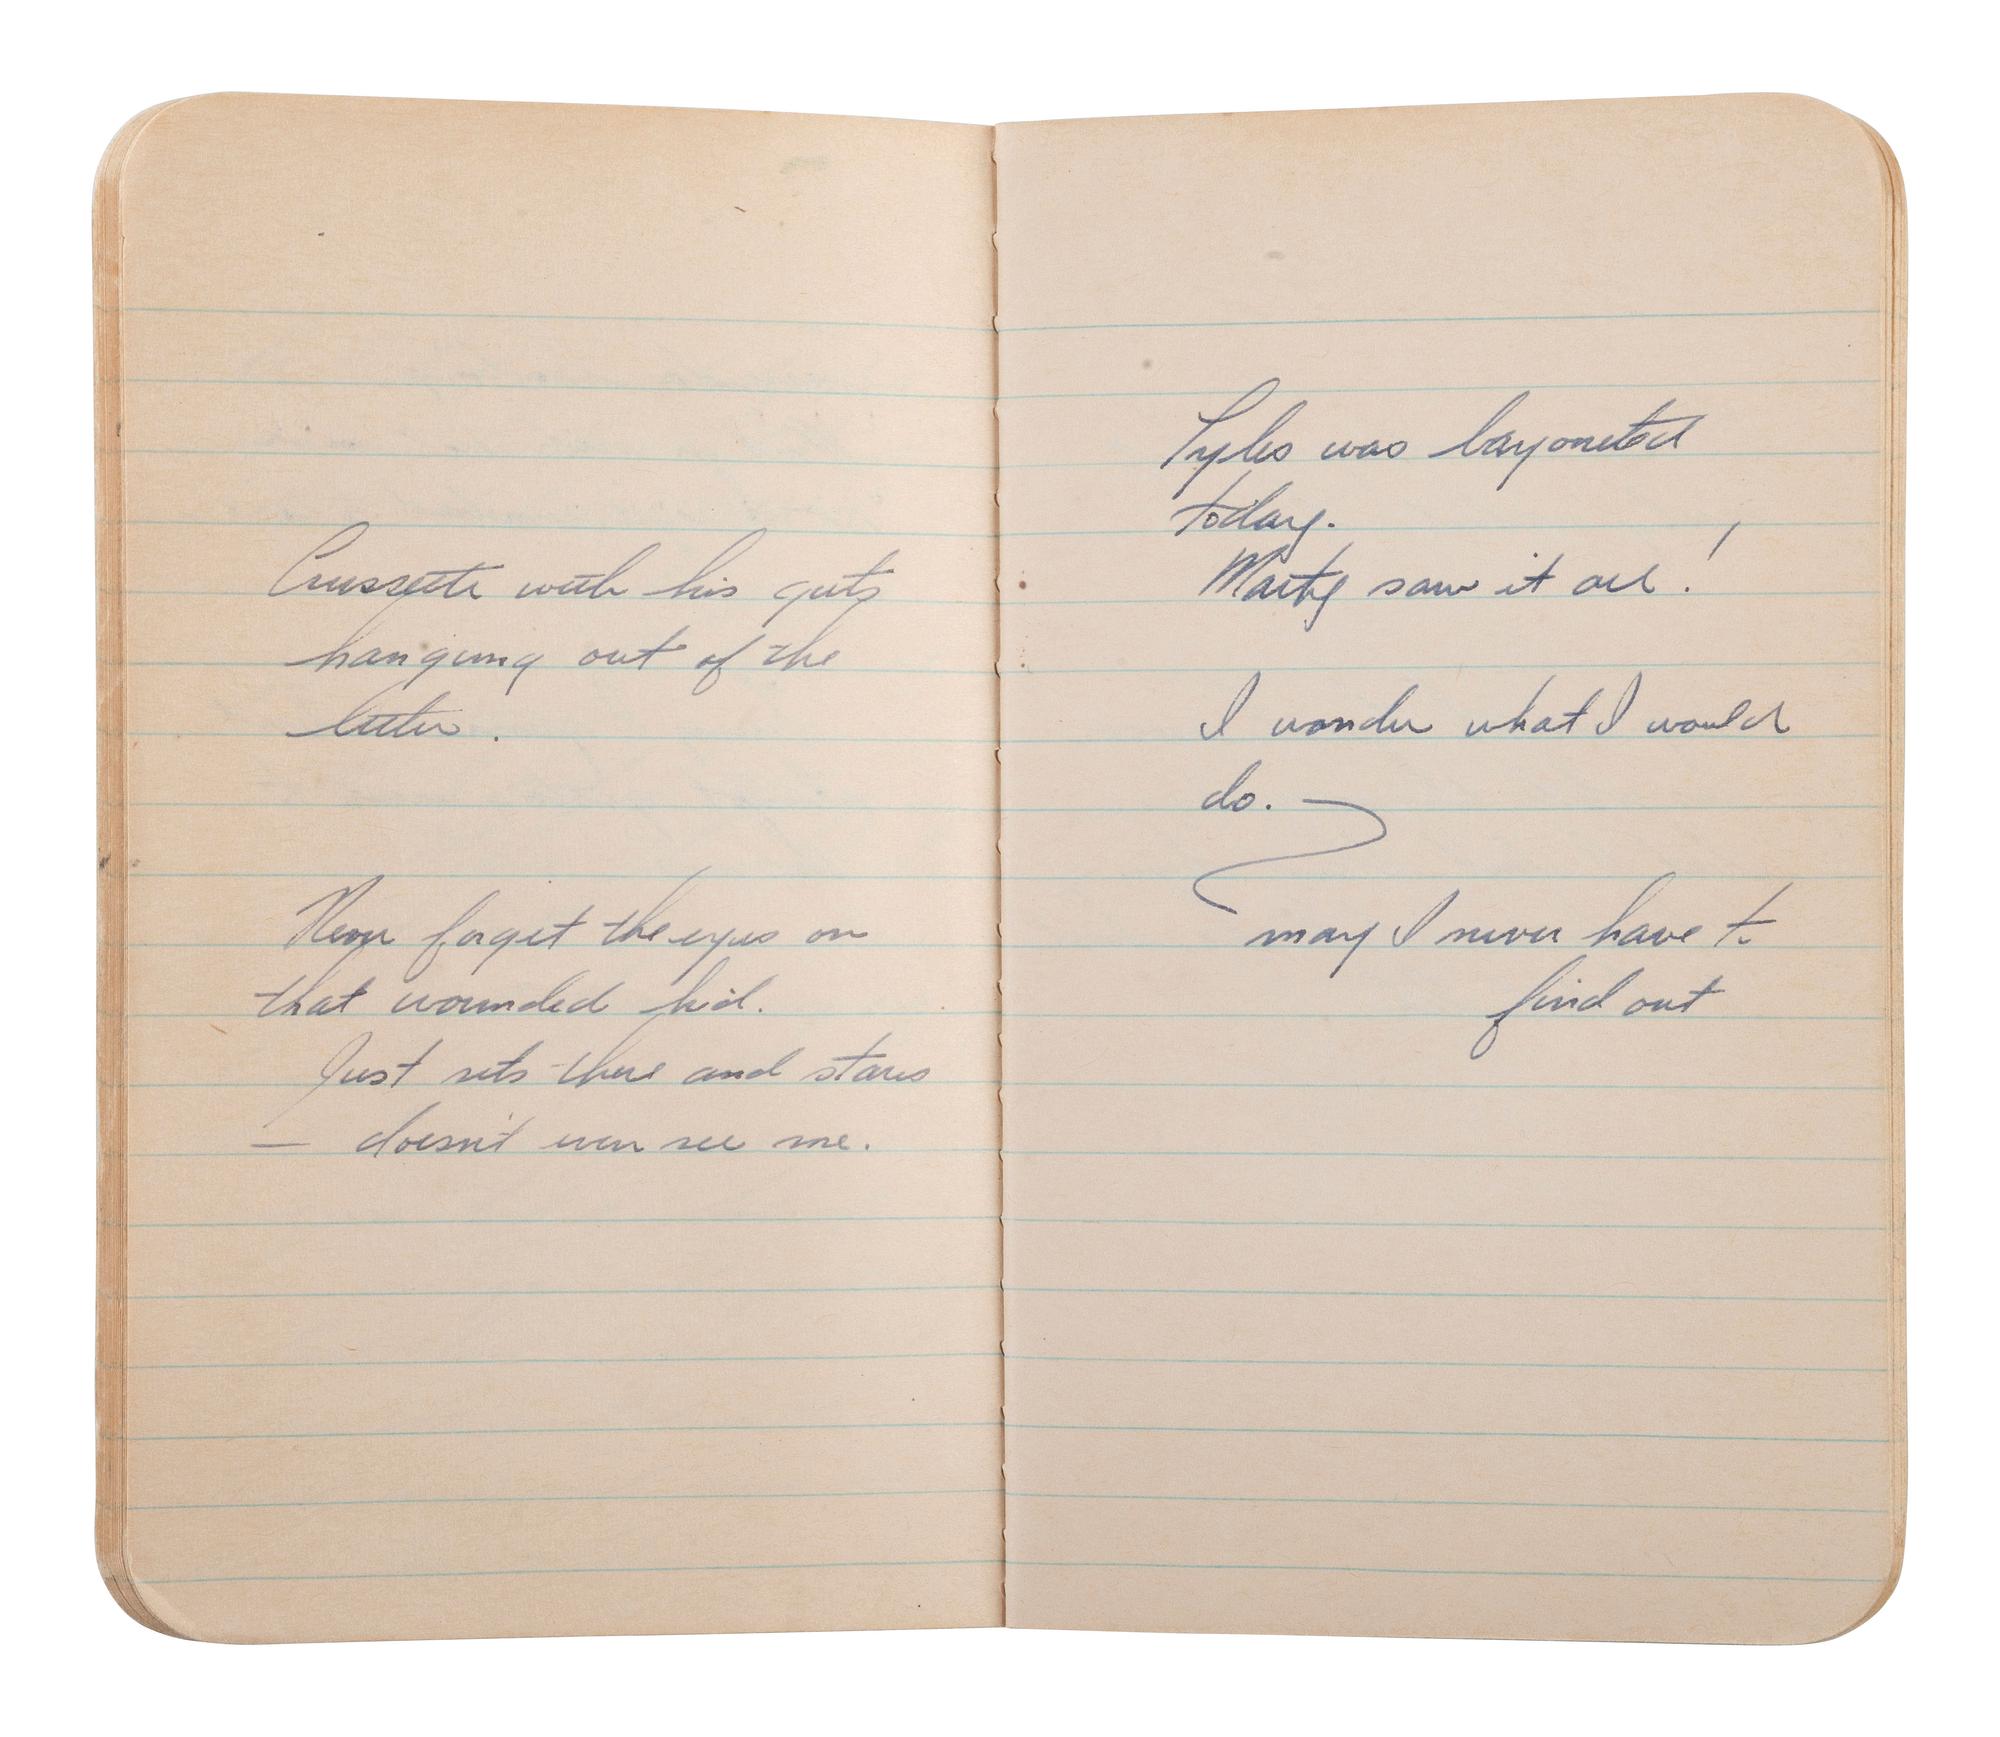 with his guts
hanging out of the
litter.
Never forget the eyes on
that wounded kid.
Just sits there and stares
— doesn't even see me.
was bayoneted
today.
Marty saw it all!
I wonder what I would
do.
may I never have to
find out